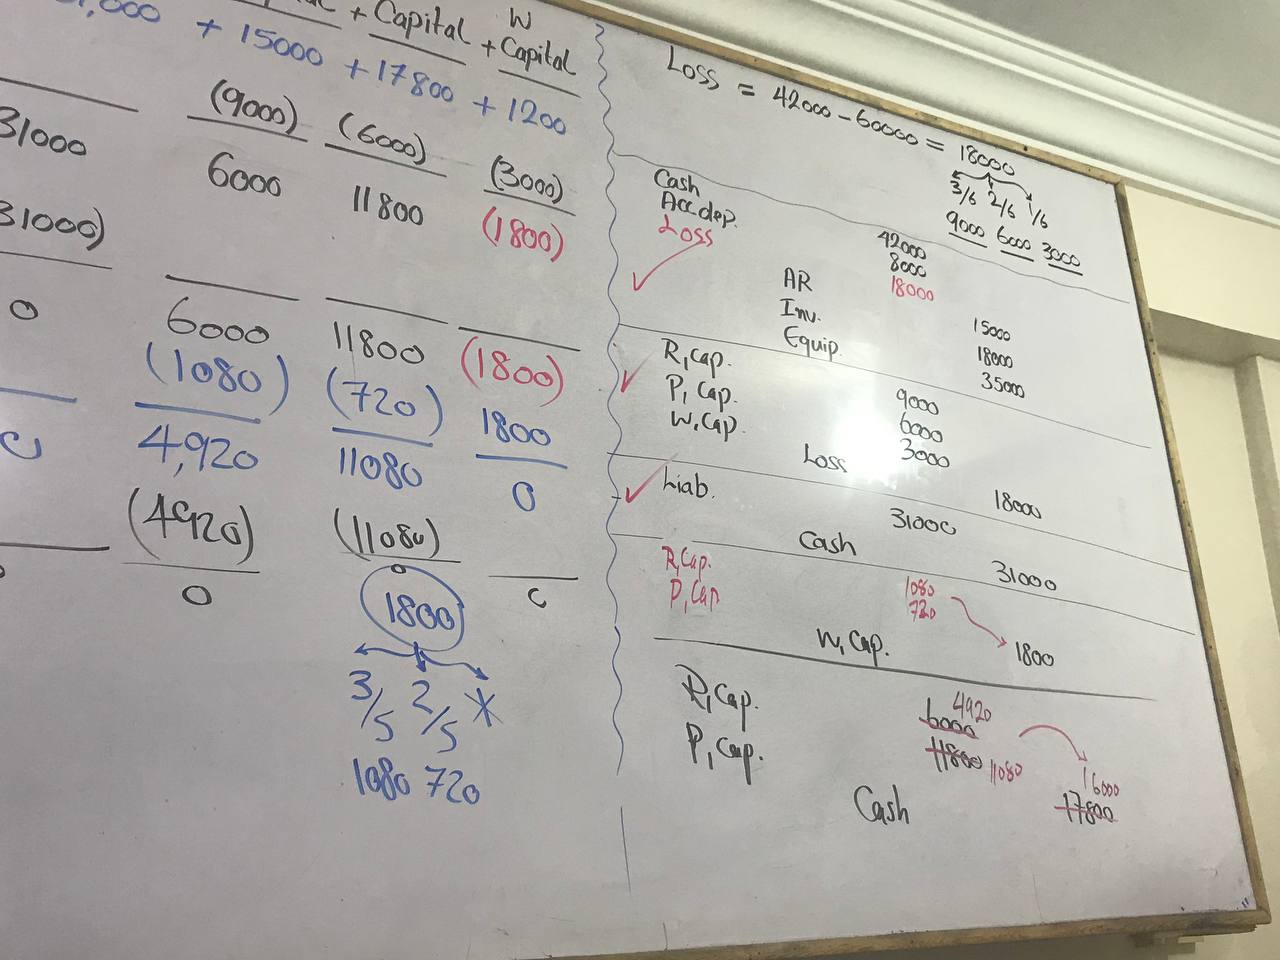 + Capital + W Capital
+ 15000 + 17800 + 1200
(9000) (6000) (3000)
31000 6000 11800 (1800)
31000)
0 6000 11800 (1800)
(1080) (720) 1800
4,920 11080 0
(4920) (11080)
0 0 C
1800
3/5 2/5
1080 720
Loss = 42000 - 60000 = 18000
3/6 2/6 1/6
9000 6000 3000
Cash 42000
Acc dep. 8000
Loss 18000
AR 15000
Inv. 18000
Equip. 35000
R, Cap. 9000
P, Cap. 6000
W, Cap. 3000
Loss 18000
Liab. 31000
Cash 31000
R, Cap. 1080
P, Cap 720
W, Cap. 1800
R, Cap. 6000 4920
P, Cap. 11800 11080
Cash 17800 16000